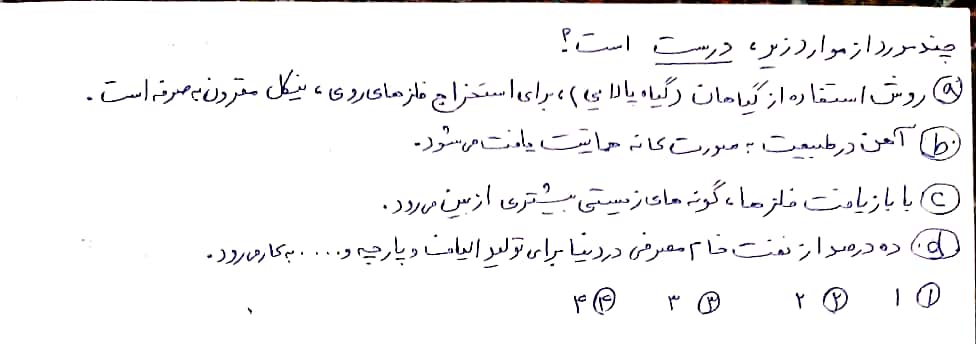 چند مورد از موارد زیر، درست است؟
a) روش استفاده از گیاهان (گیاه پالایی)، برای استخراج فلزهای روی، نیکل مقرون به صرفه است.
b) آهن در طبیعت به صورت کانه هماتیت یافت می‌شود.
c) با بازیافت فلزها، گونه های زیستی بیشتری از بین می رود.
d) ده درصد از نفت خام مصرفی در دنیا برای تولید الیاف و پارچه و .... به کار می رود.
۱) ۱ ۲) ۲ ۳) ۳ ۴) ۴